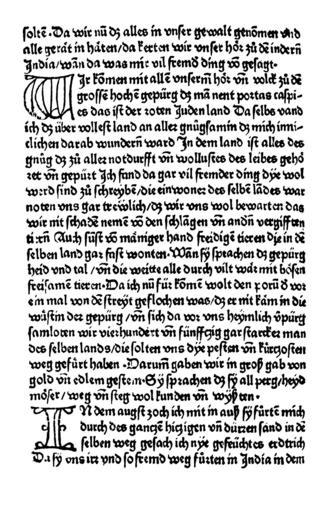 solten · Da wir nū dz alles in vnser gewalt genomen vnd
alle gerät in häten / da kerten wir vnser hör zů dē indern
India / wān da was mir vil fremd ding vō gesagt ·
Wir kōmen mit allē vnserm̄ hör vn̄ volck zů dē
grosse hochē gepürg dz mā nent portas caspi-
es das ist der roten Juden land Da selbs vand
ich dz über vollest land an aller gnůgsamin dz mich inni-
clichen darab wundern ward In dem land ist alles des
gnůg dz zů aller notdurfft vn̄ wollustes des leibes gehö
ret vn̄ gepürt Ich fand da gar vil fremder ding dye wol
word sind zů schreybē / die einwoner des selbē lādes war
noten vns gar trewlich / dz wir vns wol bewarten das
wir nit schadē nemē vō den schlāgen vn̄ andn̄ vergifften
Auch süst vō māniger hand freidigē tieren die in dē
selben land gar fast wonten · Wan̄ sy sprachen dz gepürg
heid vnd tal / vn̄ die weite alle durch vil wär mit bösen
freisamē tieren · Da ich nū für kōmē wolt den
ein mal von dē streyt geflochen was / dz er mit kām in die
wůstin der gepürg / vn̄ sich da vor vns heymlich
samloten wir vierhundert vn̄ fünffczig gar starcker man
des selben lands / die solten vns dye pesten vn̄ kürczosten
weg gefürt haben · Darum̄ gaben wir in groß gab von
gold vn̄ edlem gestein · Sy sprachen dz sy all perg / heyd
möser / weg vn̄ steg wol kunden vn̄ wyßten ·
In dem augst zoch ich mit in auß sy fürtē mich
durch des ganczē hiczigen vn̄ dürren sand in dē
selben weg gesach ich nye gefeüchtes erdtrich
Da sy vns irr vnd so fremd weg fürten in India in dem